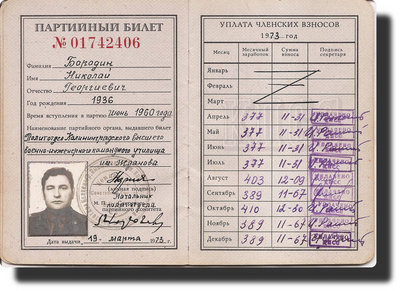 ПАРТИЙНЫЙ БИЛЕТ
№ 01742406
Фамилия Бородин
Имя Николай
Отчество Георгиевич
Год рождения 1936
Время вступления в партию июнь 1960 года
Наименование партийного органа, выдавшего билет
Политотдел Калининградского Высшего
военно-инженерного ордена училища
им. Жданова
(личная подпись)
М. П.
Начальник
политотдела
Дата выдачи 19 марта 1973 г.
УПЛАТА ЧЛЕНСКИХ ВЗНОСОВ
1973 год
Месяц Месячный заработок Сумма взноса Подпись секретаря
Январь
Февраль
Март
Апрель 377 11-31
Май 377 11-31
Июнь 377 11-31
Июль 377 11-31
Август 403 12-09
Сентябрь 389 11-67
Октябрь 410 12-30
Ноябрь 389 11-67
Декабрь 389 11-67